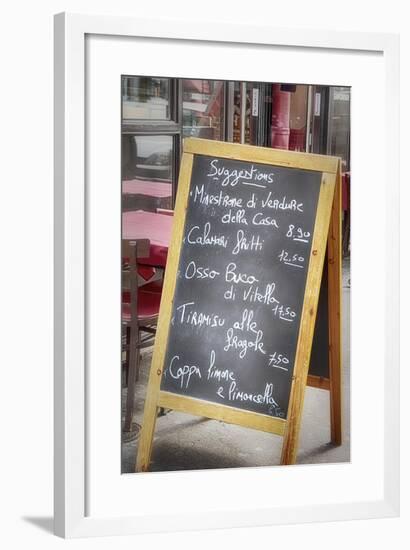 Suggestions
Minestrone di verdure
della Casa 8.90
Calamari fritti
12.50
Osso Buco
di Vitella
17.50
Tiramisu alle
fragole
7.50
Coppa limone
e limoncella